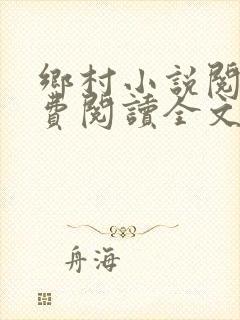 鄉村小說閱
費閱讀全文
舟海